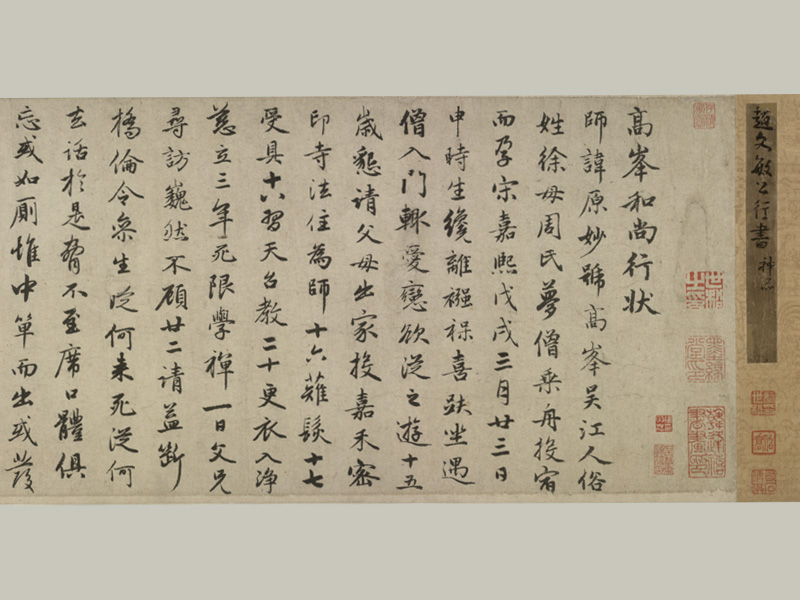 趙文敏公行書 神品
高峯和尚行狀
師諱原妙號高峯吳江人俗
姓徐母周氏夢僧乘舟投宿
而孕宋嘉熙戊戌三月廿三日
申時生纔離襁褓喜趺坐遇
僧入門輒愛戀欲從之遊十五
歲懇請父母出家投嘉禾密
印寺法住為師十六薙髮十七
受具十八習天台教二十更衣入淨
慈立三年死限學禪一日父兄
尋訪巍然不顧廿二請益斷
橋倫令叅生從何来死從何
去話於是脅不至席口體俱
忘或如厠惟中單而出或發